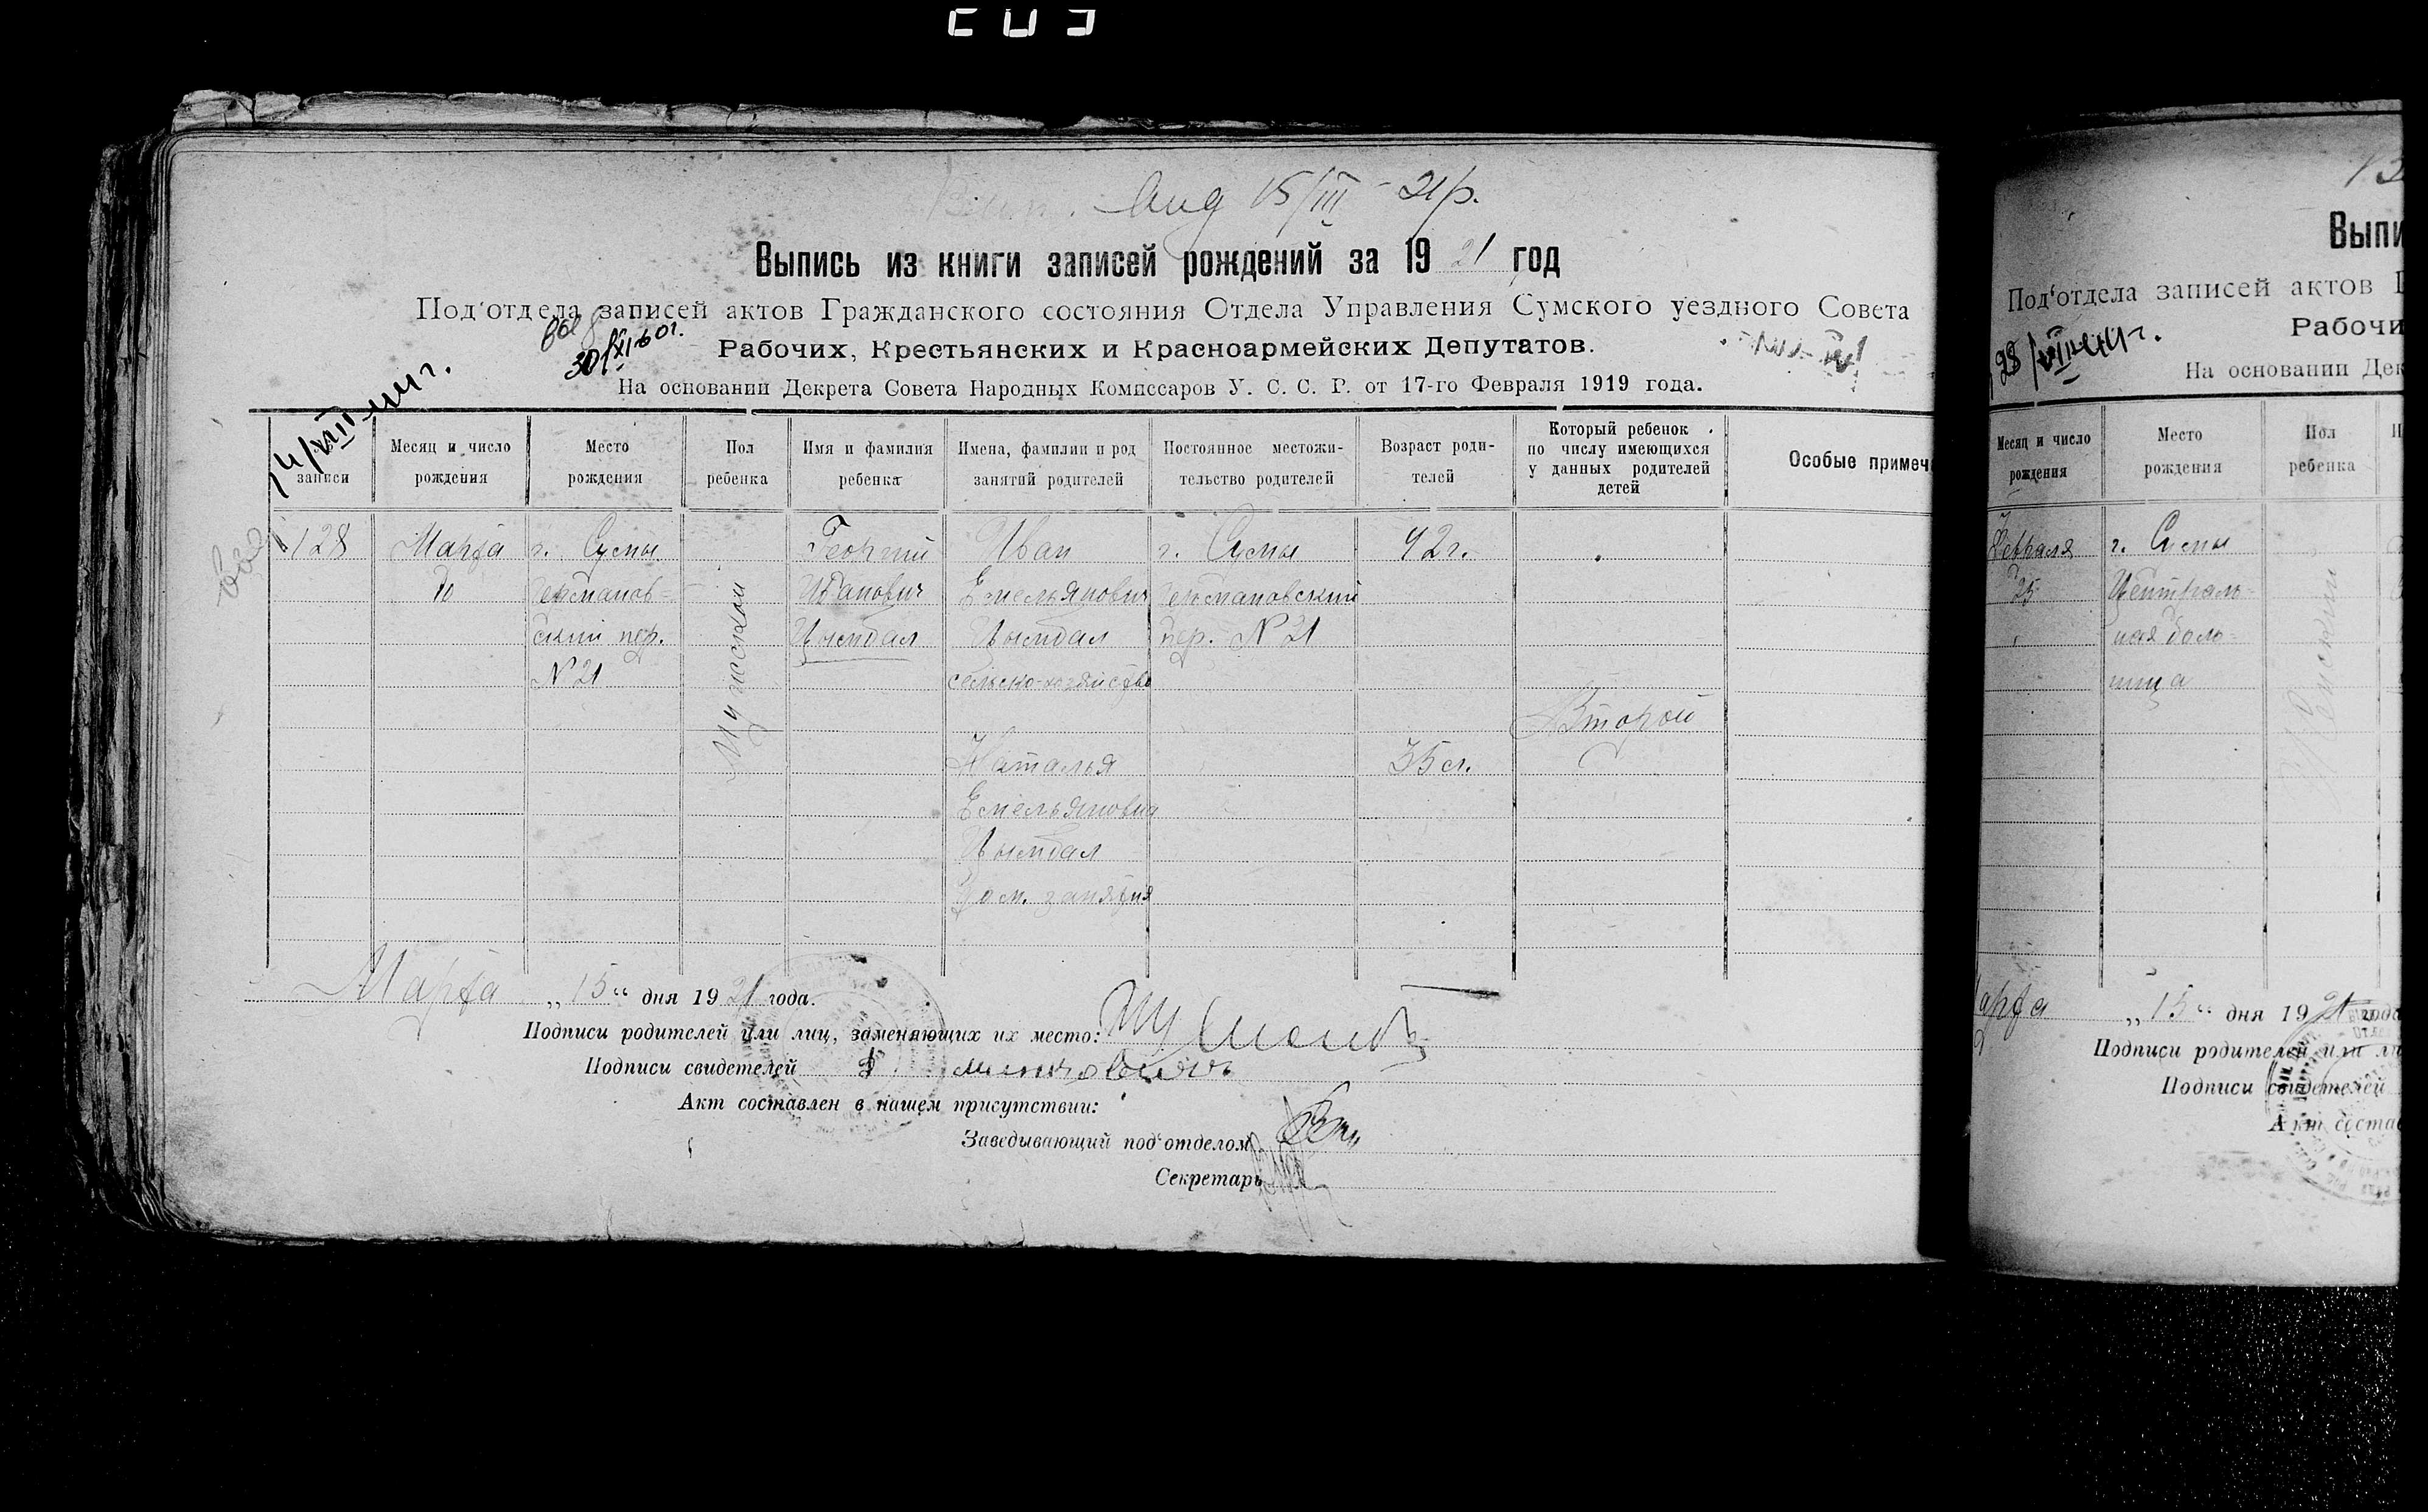 15/III - 21р.
Выпись из книги записей рождений за 1921 год
Под'отдела записей актов Гражданского состояния Отдела Управления Сумского уездного Совета
30/XI-60г.
Рабочих, Крестьянских и Красноармейских Депутатов.
На основании Декрета Совета Народных Комиссаров У. С. С. Р. от 17-го Февраля 1919 года.
записи
Месяц и число рождения
Место рождения
Пол ребенка
Имя и фамилия ребенка
Имена, фамилии и род занятий родителей
Постоянное местожительство родителей
Возраст родителей
Который ребенок по числу имеющихся у данных родителей детей
Особые примеч
128 Марта г. Сумы Георгий Иван г. Сумы 42г.
10 Германов- Иванович Емельянович Германовский
ский пер. Цымбал Цымбал пер. N 21
N 21 сельско-хозяйство
Мужской
Второй
Наталья 35 л.
Емельяновна
Цымбал
Дом. занятия
Марта „15“ дня 1921 года.
Подписи родителей или лиц, заменяющих их место:
Подписи свидетелей
Акт составлен в нашем присутствии:
Заведывающий под'отделом
Секретарь
Выпи
Под'отдела записей актов Г
Рабочи
На основании Дек
Месяц и число рождения
Место рождения
Пол ребенка
Февраля г. Сумы
25 Централь-
ная боль-
ница
Женский
арта „15“ дня 1921 года
Подписи родителей или ли
Подписи свидетелей
Акт состав